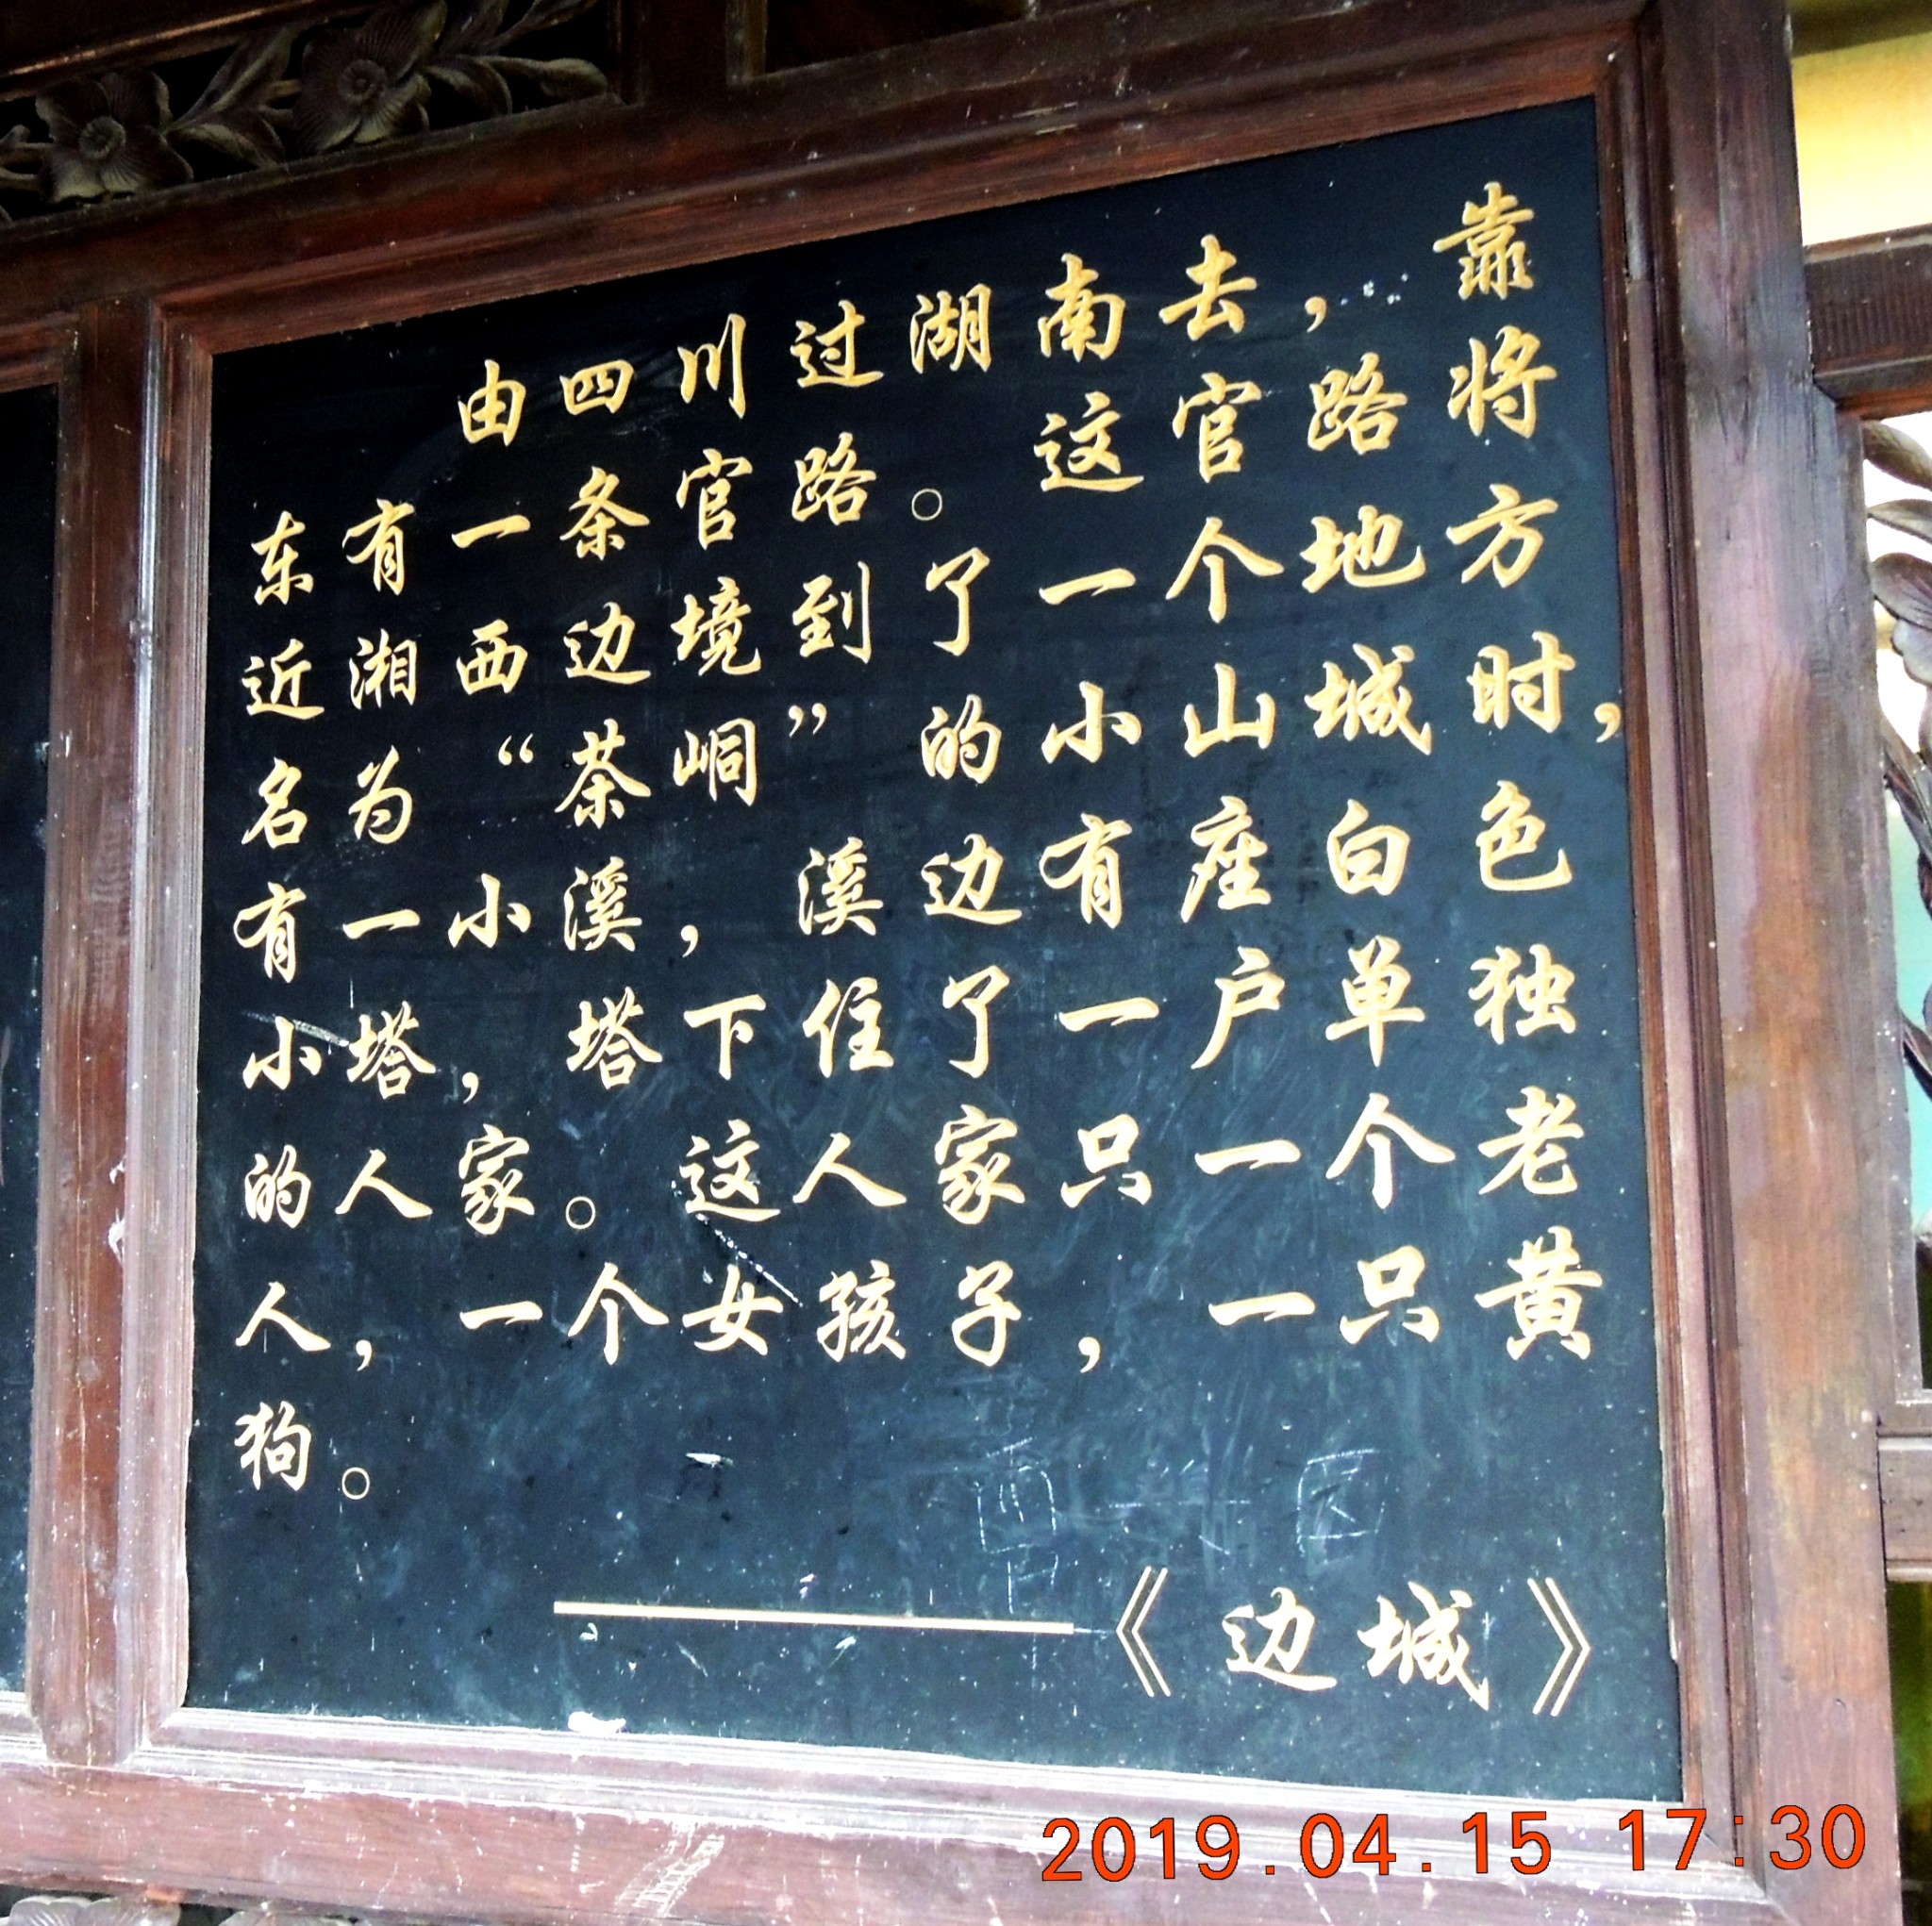 由四川过湖南去，靠
东有一条官路。这官路将
近湘西边境到了一个地方
名为“茶峒”的小山城时，
有一小溪，溪边有座白色
小塔，塔下住了一户单独
的人家。这人家只一个老
人，一个女孩子，一只黄
狗。
——《边城》
2019.04.15 17:30